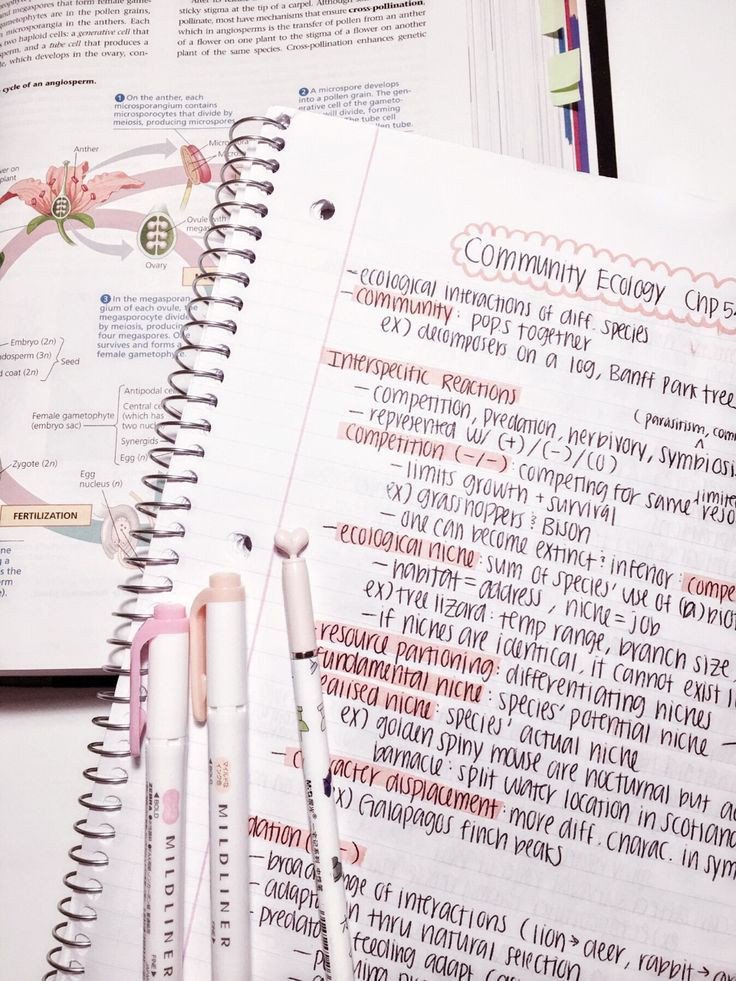 megaspores that form female game-
gametophytes are in the pollen grains
microsporangia in the anthers. Each
two haploid cells: a generative cell that
sperm, and a tube cell that produces a
which develops in the ovary, con-
sticky stigma at the tip of a carpel. Although
pollinate, most have mechanisms that ensure cross-pollination,
which in angiosperms is the transfer of pollen from an anther
of a flower on one plant to the stigma of a flower on another
plant of the same species. Cross-pollination enhances genetic
cycle of an angiosperm.
1 On the anther, each
microsporangium contains
microsporocytes that divide by
meiosis, producing microspores
2 A microspore develops
into a pollen grain. The gen-
erative cell of the gameto-
will divide, forming
The tube cell
pollen tube.
Anther
Ovule with
Ovary
3 In the megasporan-
gium of each ovule, the
megasporocyte divides
by meiosis, producing
four megaspores. One
survives and forms a
female gametophyte.
Embryo (2n)
endosperm (3n)
coat (2n)
Seed
Antipodal
Central
(which has
two nuclei
Synergids
Egg (n)
Female gametophyte
(embryo sac)
Zygote (2n)
Egg
nucleus (n)
FERTILIZATION
Community Ecology Chp 54
-ecological interactions of diff. species
-community: pops together
ex) decomposers on a log, Banff Park tree
Interspecific Reactions
(parasitism, com
-competition, predation, herbivory, symbiosis
-represented w/ (+)/(-)/(0)
competition (-/-): competing for same limited
-limits growth + survival
ex) grasshoppers & Bison
-one can become extinct & inferior: compe
-ecological niche: sum of species' use of (a)biot
-habitat = address, niche = job
ex) tree lizard: temp range, branch size,
-if niches are identical, it cannot exist
resource partioning: differentiating niches
fundamental niche: species' potential niche -
realised niche: species' actual niche
ex) golden spiny mouse are nocturnal but
barnacle: split water location in Scotland
character displacement: more diff. charac. in sym
ex) Galapagos finch beaks
-broad range of interactions (lion → deer, rabbit →
-adaption thru natural selection
feeding adapt
ZEBRA
BOLD
MILDLINER
FINE
マイルドな
インク色
BOLD
MILDLINER
FINE
M&G